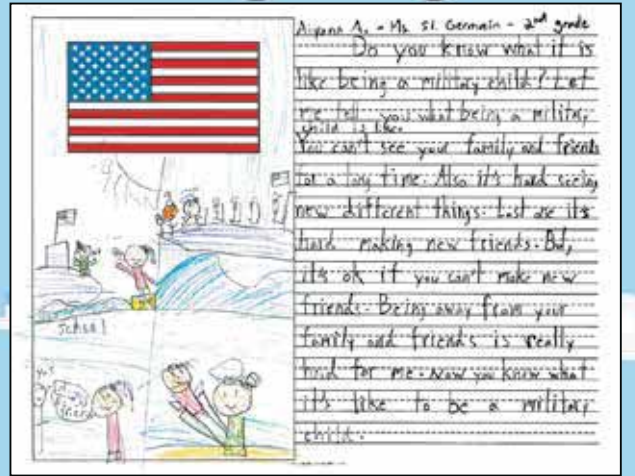 Aiyana A. - Ms. St. Germain - 2nd grade
Do you know what it is
like being a military child? Let
me tell you what being a military
child is like.
You can't see your family and friends
for a long time. Also it's hard seeing
new different things. Last one its
hard making new friends. But,
it's ok if you can't make new
friends. Being away from your
family and friends is really
hard for me. Now you know what
it's like to be a military
child.
School